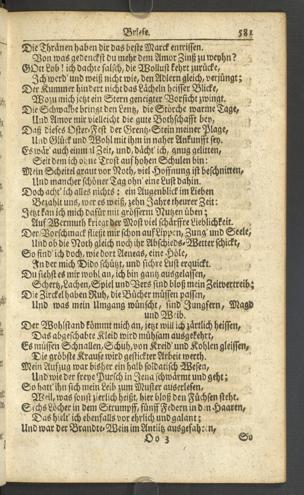 Briefe. 581
Die Thränen haben dir das beste Marck entrissen.
Von was gedenckst du mehr dem Amor Zinß zu weyhn?
GOtt Lob! ich dachte falsch, die Wollust kehrt zurücke,
Ich werd' und weiß nicht wie, den Adlern gleich, verjüngt;
Der Kummer hindert nicht das Lächeln heisser Blicke,
Wozu mich jetzt ein Stern geneigter Vorsicht zwingt.
Die Schwalbe bringt den Lentz, die Störche warme Tage,
Und Amor mir vielleicht die gute Bothschafft bey,
Daß dieses Oster-Fest der Grentz-Stein meiner Plage,
Und Glück und Wohl mit ihm in naher Ankunfft sey.
Es wär' auch einmal Zeit, und, dächt' ich, gnug gelitten,
Seit dem ich ohne Trost auf hohen Schulen bin:
Mein Scheitel graut vor Noth, viel Hoffnung ist beschnitten,
Und mancher schöner Tag ohn' eine Lust dahin.
Doch acht' ich alles nichts: ein Augenblick im Lieben
Bezahlt uns, wer es weiß, zehn Jahre theurer Zeit:
Jetzt kan ich mich dafür mit grösserm Nutzen üben;
Auf Wermuth kriegt der Most viel schärffre Lieblichkeit.
Der Vorschmack fliest mir schon auf Lippen, Zung' und Seele,
Und ob die Noth gleich noch ihr Abschieds-Wetter schickt,
So find' ich doch, wie dort Aeneas, eine Höle,
In der mich Dido schützt, und sichre Lust erquickt.
Du siehst es mir wohl an, ich bin gantz ausgelassen,
Schertz, Lachen, Spiel und Vers sind bloß mein Zeitvertreib;
Die Zirckel haben Ruh, die Bücher müssen passen,
Und was mein Umgang wünscht, sind Jungfern, Magd
und Weib.
Der Wohlstand kömmt mich an, jetzt will ich zärtlich heissen,
Das abgeschabte Kleid wird mühsam ausgekehrt,
Es müssen Schnallen, Schuh, von Kreid' und Kohlen gleissen,
Die gröbste Krause wird gestickter Arbeit werth.
Mein Aufzug war bisher ein halb soldatisch Wesen,
Und wie der freye Pursch in Jena schwärmt und geht;
So hatt' ihn sich mein Leib zum Muster auserlesen,
Weil, was sonst zierlich heißt, hier bloß den Füchsen steht.
Sechs Löcher in dem Strumpff, fünff Federn in den Haaren,
Das hielt' ich ebenfalls vor ehrlich und galant;
Und war der Brandte-Wein im Antlitz ausgefahren,
Oo 3 So